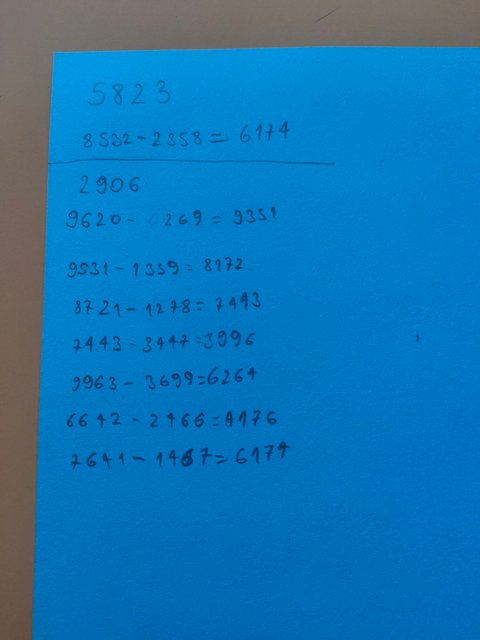 5823
8532-2358= 6174
2906
9620- 0269 = 9351
9531-1359= 8172
8721-1278= 7443
7443-3447=3996
9963-3699=6264
6642-2466=4176
7641-1467=6174